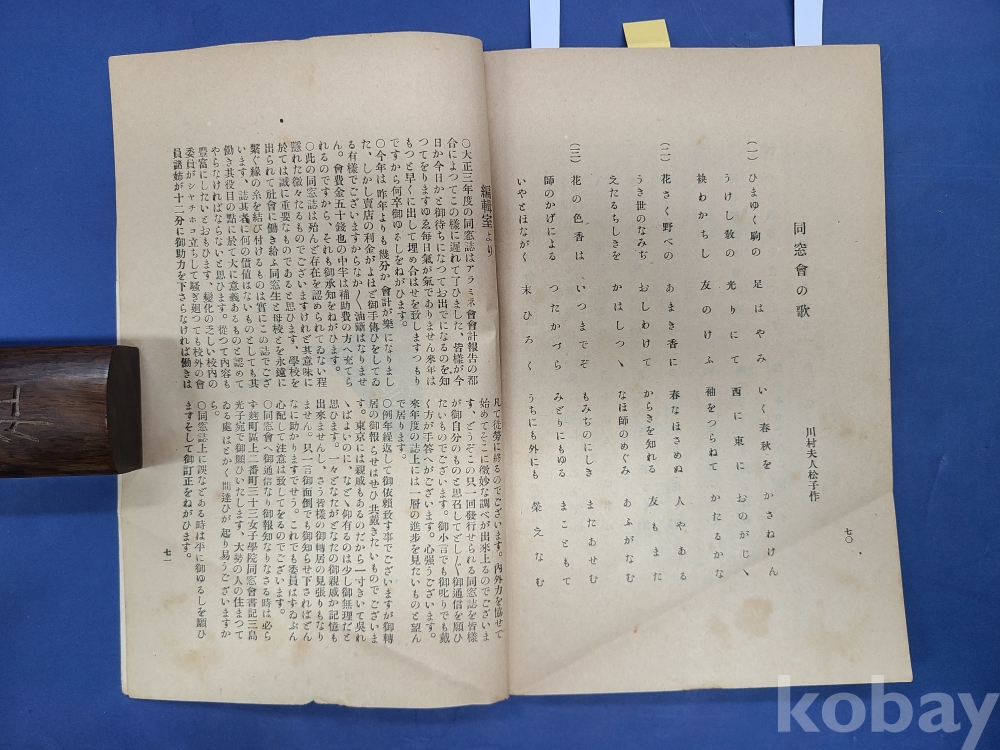 同窓會の歌
川村夫人松子作
(一) ひまゆく駒の 足はやみ いく春秋を かさねけん
うけし敎の 光りにて 西に東に おのがじゝ
袂わかちし 友のけふ 袖をつらねて かたるかな
(二) 花さく野べの あまき香に 春なほさめぬ 人やある
うき世のなみぢ おしわけて からきを知れる 友もまた
えたるちしきを かはしつゝ なほ師のめぐみ あふがなむ
(三) 花の色香は いつまでぞ もみぢのにしき またあせむ
師のかげによる つたかづら みどりにもゆる まこともて
いやとほながく 末ひろく うちにも外にも 榮えなむ
七〇
編輯室より
○大正三年度の同窓誌はアラミネ會會計報告の都
合によつてこの樣に遲れて了ひました、皆樣が今
日か今日かと御待ちになつてお出でになるのを知
つてをりますゆゑ每日氣が氣でありません來年は
もつと早くに出して埋め合はせを致しますつもり
ですから何卒御ゆるしをねがひます。
○今年は昨年よりも幾分か會計が樂になりまし
た、しかし賣店の利金がよほど御手傳ひをしてゐ
る有樣でございますからなか〳〵油斷はなりませ
ん。會費金五十錢也の中半は補助費の方へ充てら
れるのですから、それも御承知をねがひます。
○此の同窓誌は殆んど存在を認められてゐない程
隱れた微々たるものでございますけれど其意味に
於ては誠に重要なものであると思ひます、學校を
出られて社會に働き給ふ同窓生と母校とを永遠に
繫ぐ緣の糸を結び付けるものは實にこの誌でござ
います、誌其者に何の價値はないものとしても其
働き其役目の點に於て大に意義あるものと認めて
やらなければならないと思ひます。從つて內容も
豐富にしたいとおもひます、變化の乏しい校內の
委員がシヤチホコ立ちして騷ぎ廻つても校外の會
員諸姉が十二分に御助力を下さらなければ働きは
凡て徒勞に終るのでございます。內外力を協せて
始めてそこに微妙な調べが出來上るのでございま
す、どうぞこの只一回發行せられる同窓誌を皆樣
が御自分のものと思召してどし〴〵御通信を願ひ
たいものでございます。御小言でも御叱りでも戴
く方が手答へがございます。心强うございます。
來年度の誌上には一層の進步を見たいものと望ん
で居ります。
○例年繰返して御依賴致す事でございますが御轉
居の御報らせはぜひ共戴きたいものでございま
す。東京には親戚もあるのだから一寸きいて吳れ
ゝばよいのに、など仰有るのは少し御無理だと
思ひます。一々どなたがどなたの御親戚か記憶も
出來ませんし、さう皆樣の御轉居の見張りもなり
ません。只一言御面倒でも御知らせ下さればどん
なに助かりますでせう。これでも委員はずゐぶん
心配して注意は致してをるのでございます。
○同窓會へ御通信なり御報知なりなさる時は必ら
ず麴町區上二番町三十三女子學院同窓會書記三島
光子宛で御願ひいたします、大勢の人の住まつて
ゐる處はとかく間違ひが起り易うございますか
ら。
○同窓誌上に誤などある時は平に御ゆるしを願ひ
ますそして御訂正をねがひます。
七一
kobay